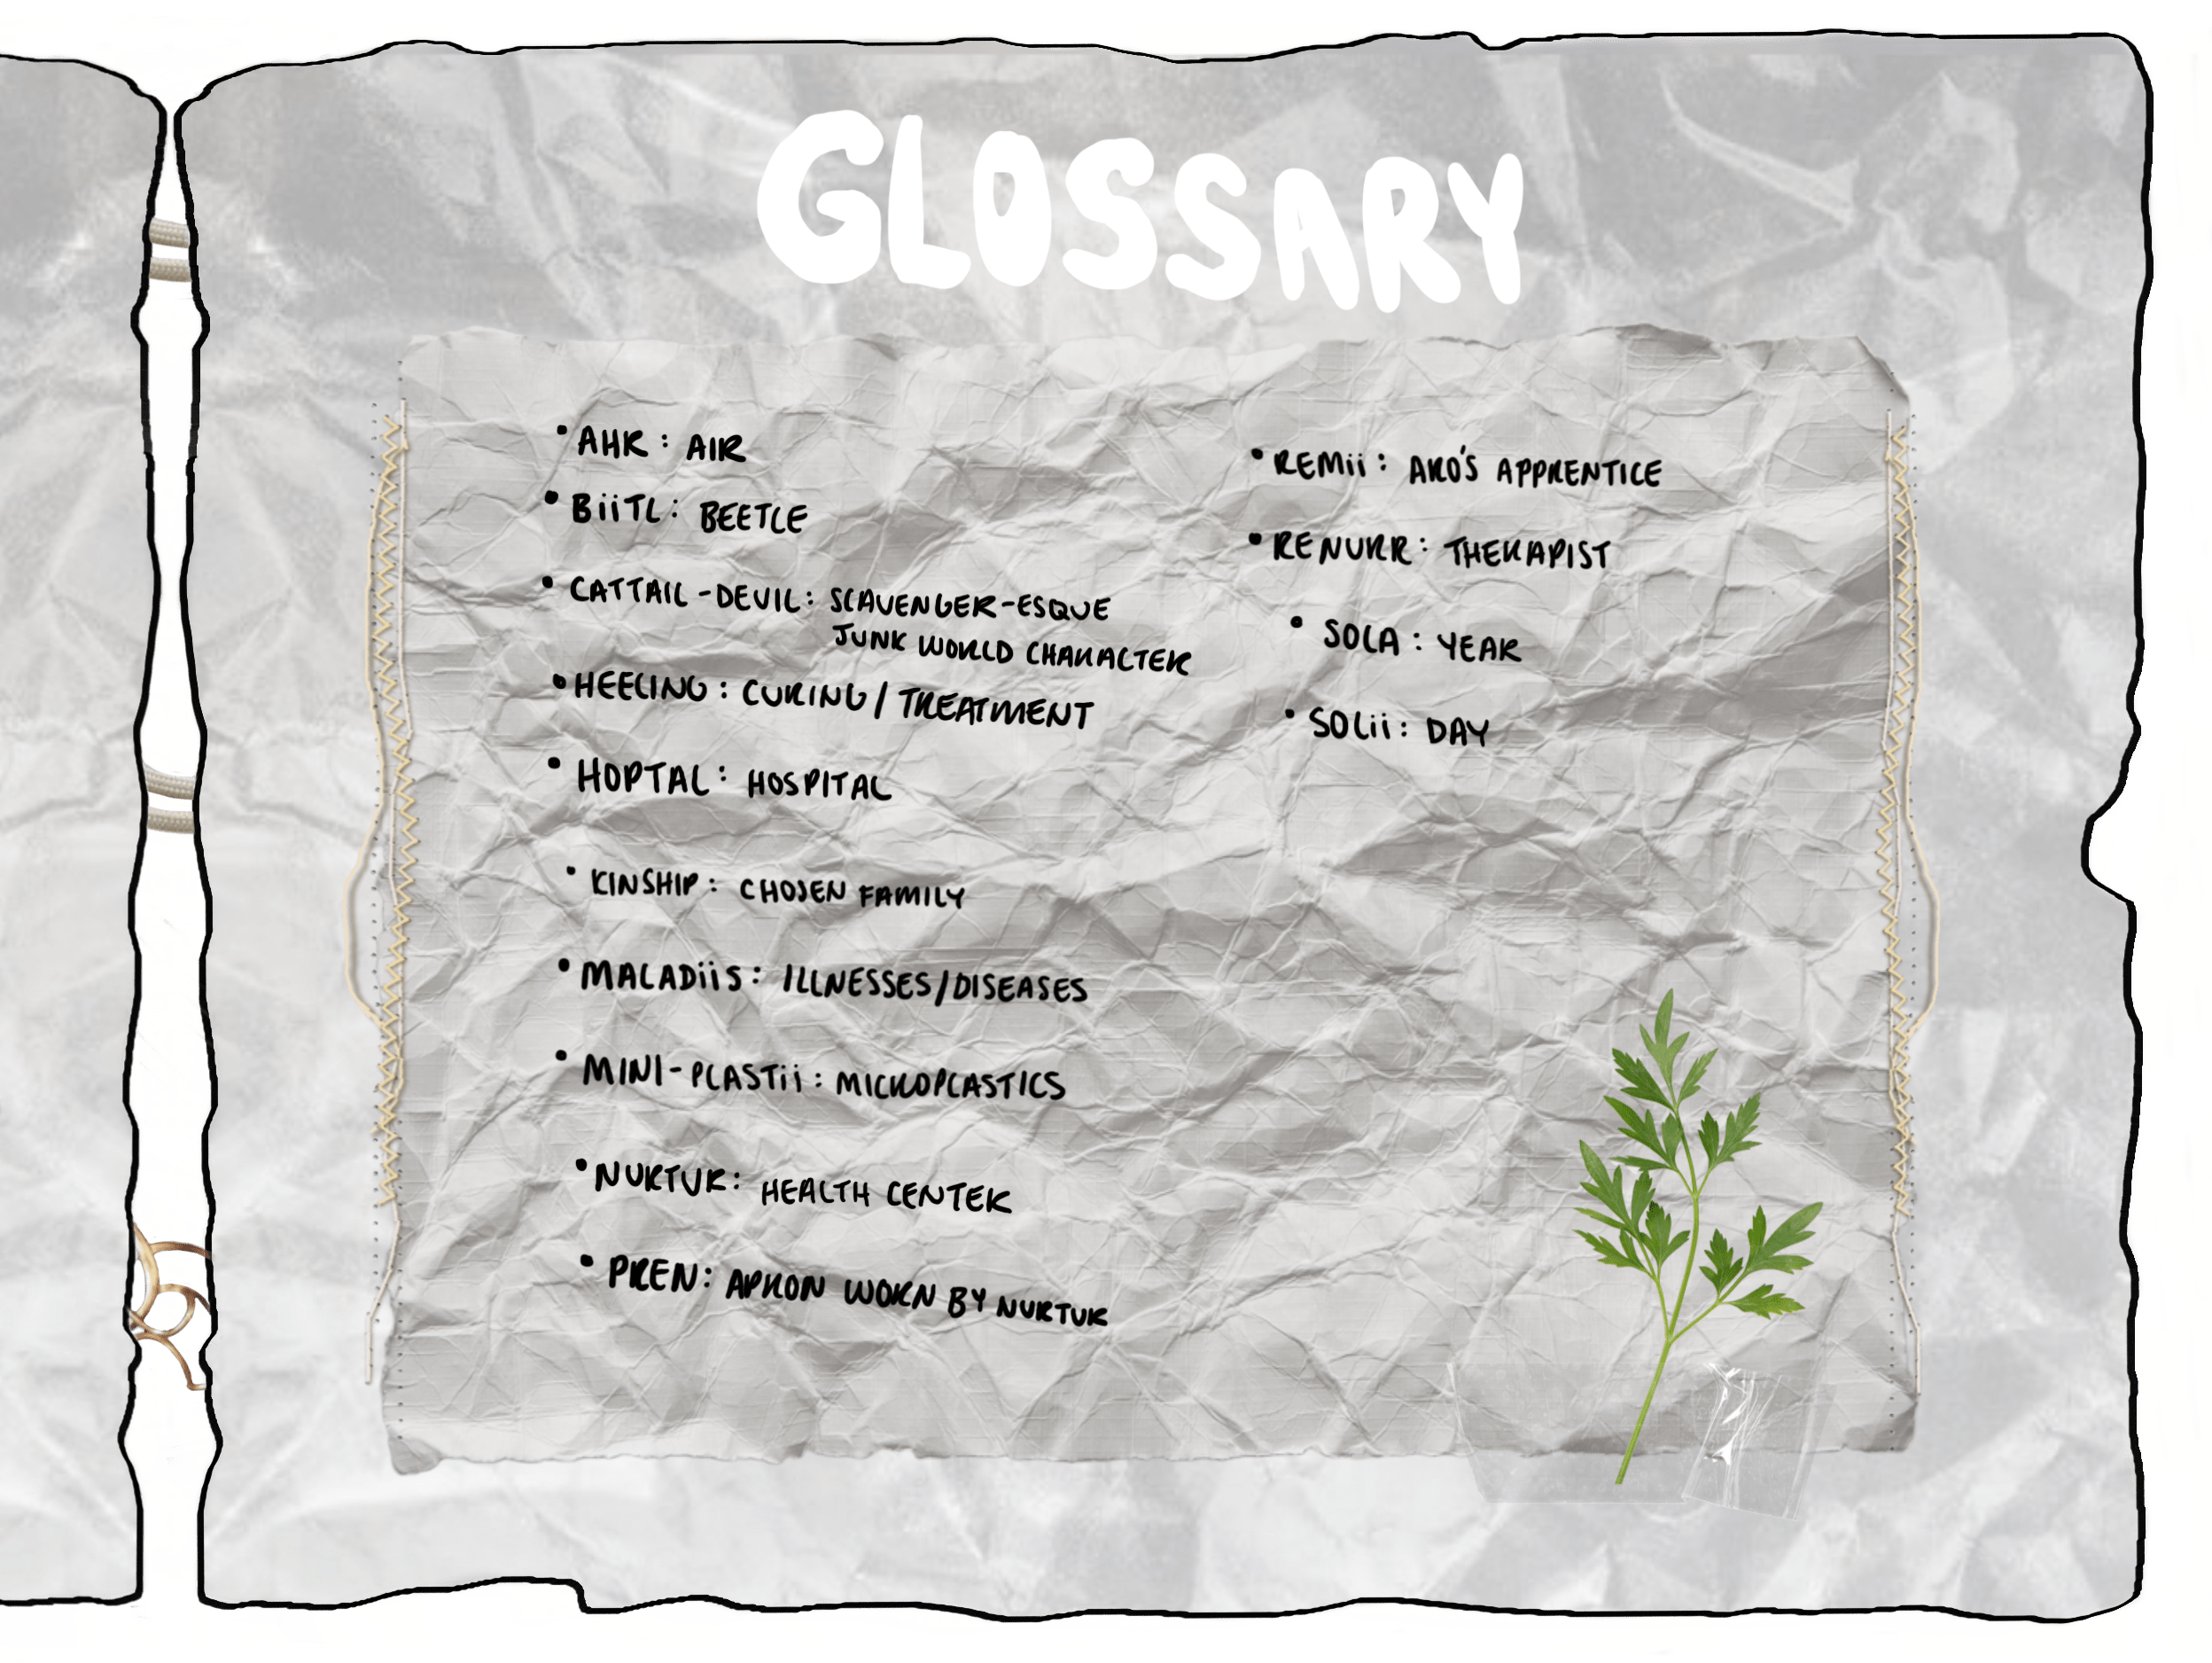 GLOSSARY
• AHR : AIR
• BiiTL : BEETLE
• CATTAIL-DEVIL : SCAVENGER-ESQUE
JUNK WORLD CHARACTER
• HEELING : CURING / TREATMENT
• HOPTAL : HOSPITAL
• KINSHIP : CHOSEN FAMILY
• MALADiiS : ILLNESSES/DISEASES
• MINI-PLASTii : MICROPLASTICS
• NURTUR : HEALTH CENTER
• PREN : APRON WORN BY NURTUR
• REMii : ARO'S APPRENTICE
• RENURR : THERAPIST
• SOLA : YEAR
• SOLii : DAY